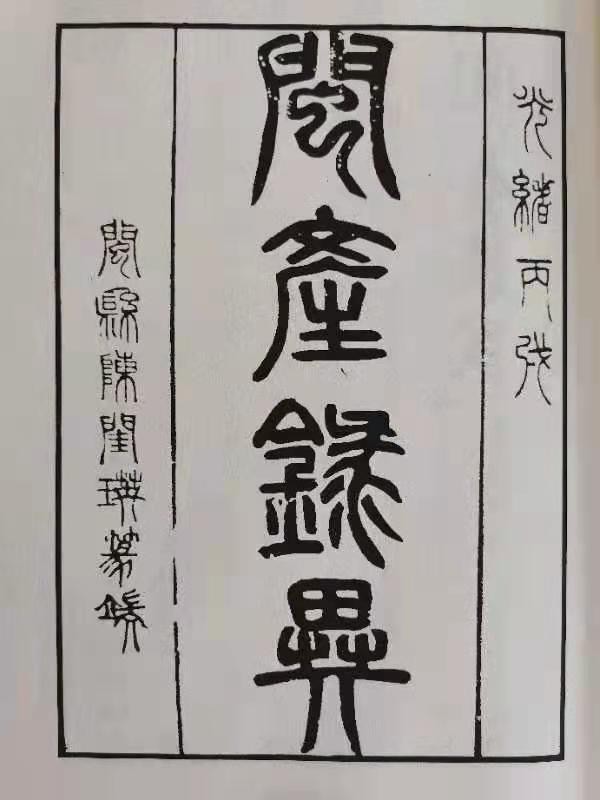 光緒丙戌
閩產錄異
閩縣陳閨瑛篆